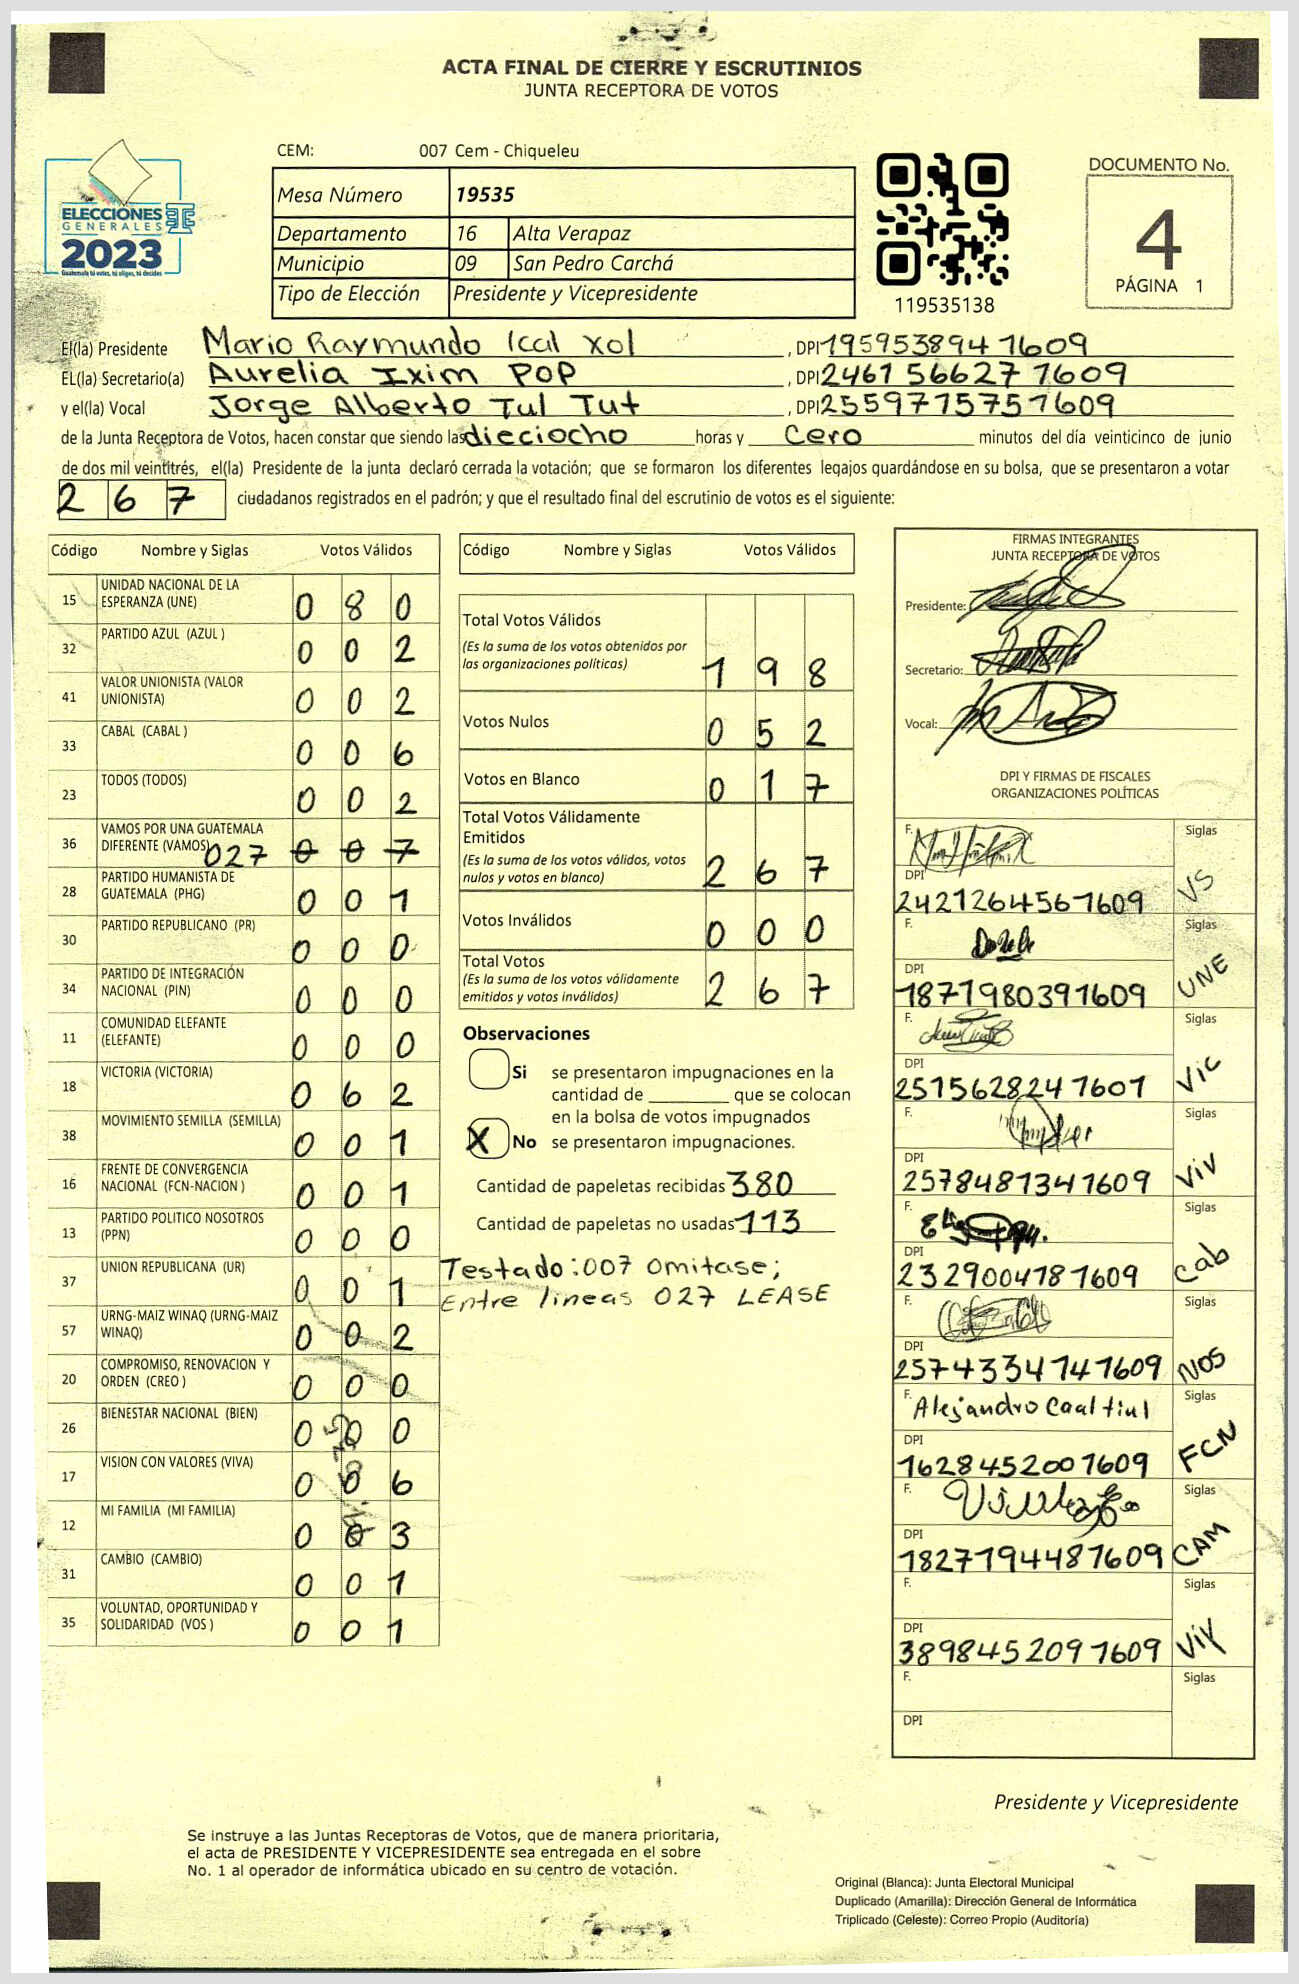 ACTA FINAL DE CIERRE Y ESCRUTINIOS
JUNTA RECEPTORA DE VOTOS
CEM: 007 Cem - Chiqueleu
ELECCIONES
GENERALES
2023
Guatemala tú votas, tú eliges, tú decides
Mesa Número 19535
Departamento 16 Alta Verapaz
Municipio 09 San Pedro Carchá
Tipo de Elección Presidente y Vicepresidente
119535138
DOCUMENTO No.
4
PÁGINA 1
El(la) Presidente Mario Raymundo Ical Xol, DPI 1959538941609
EL(la) Secretario(a) Aurelia Ixim POP, DPI 2461566271609
y el(la) Vocal Jorge Alberto Tul Tut, DPI 2559715751609
de la Junta Receptora de Votos, hacen constar que siendo las dieciocho horas y Cero minutos del día veinticinco de junio
de dos mil veintitrés, el(la) Presidente de la junta declaró cerrada la votación; que se formaron los diferentes legajos guardándose en su bolsa, que se presentaron a votar
267 ciudadanos registrados en el padrón; y que el resultado final del escrutinio de votos es el siguiente:
Código Nombre y Siglas Votos Válidos
15 UNIDAD NACIONAL DE LA ESPERANZA (UNE) 0 8 0
32 PARTIDO AZUL (AZUL ) 0 0 2
41 VALOR UNIONISTA (VALOR UNIONISTA) 0 0 2
33 CABAL (CABAL ) 0 0 6
23 TODOS (TODOS) 0 0 2
36 VAMOS POR UNA GUATEMALA DIFERENTE (VAMOS) 027 0 0 7
28 PARTIDO HUMANISTA DE GUATEMALA (PHG) 0 0 1
30 PARTIDO REPUBLICANO (PR) 0 0 0
34 PARTIDO DE INTEGRACIÓN NACIONAL (PIN) 0 0 0
11 COMUNIDAD ELEFANTE (ELEFANTE) 0 0 0
18 VICTORIA (VICTORIA) 0 6 2
38 MOVIMIENTO SEMILLA (SEMILLA) 0 0 1
16 FRENTE DE CONVERGENCIA NACIONAL (FCN-NACION ) 0 0 1
13 PARTIDO POLITICO NOSOTROS (PPN) 0 0 0
37 UNION REPUBLICANA (UR) 0 0 1
57 URNG-MAIZ WINAQ (URNG-MAIZ WINAQ) 0 0 2
20 COMPROMISO, RENOVACION Y ORDEN (CREO ) 0 0 0
26 BIENESTAR NACIONAL (BIEN) 0 0 0
17 VISION CON VALORES (VIVA) 0 0 6
12 MI FAMILIA (MI FAMILIA) 0 0 3
31 CAMBIO (CAMBIO) 0 0 1
35 VOLUNTAD, OPORTUNIDAD Y SOLIDARIDAD (VOS ) 0 0 1
Código Nombre y Siglas Votos Válidos
Total Votos Válidos
(Es la suma de los votos obtenidos por
las organizaciones políticas) 1 9 8
Votos Nulos 0 5 2
Votos en Blanco 0 1 7
Total Votos Válidamente
Emitidos
(Es la suma de los votos válidos, votos
nulos y votos en blanco) 2 6 7
Votos Inválidos 0 0 0
Total Votos
(Es la suma de los votos válidamente
emitidos y votos inválidos) 2 6 7
Observaciones
Si se presentaron impugnaciones en la
cantidad de ________ que se colocan
en la bolsa de votos impugnados
X No se presentaron impugnaciones.
Cantidad de papeletas recibidas 380
Cantidad de papeletas no usadas 113
Testado: 007 Omitase;
Entre lineas 027 LEASE
FIRMAS INTEGRANTES
JUNTA RECEPTORA DE VOTOS
Presidente:
Secretario:
Vocal:
DPI Y FIRMAS DE FISCALES
ORGANIZACIONES POLÍTICAS
F. Siglas
DPI
2421264561609 VS
F. Siglas
DPI
1871980391609 UNE
F. Siglas
DPI
2515628241601 Vic
F. Siglas
DPI
2578481341609 Viv
F. Siglas
DPI
2329004781609 Cab
F. Siglas
DPI
2574334741609 NOS
F. Alejandro Caal tiul Siglas
DPI
1628452001609 FCN
F. Siglas
DPI
1827194481609 CAM
F. Siglas
DPI
3898452091609 Viv
F. Siglas
DPI
Presidente y Vicepresidente
Se instruye a las Juntas Receptoras de Votos, que de manera prioritaria,
el acta de PRESIDENTE Y VICEPRESIDENTE sea entregada en el sobre
No. 1 al operador de informática ubicado en su centro de votación.
Original (Blanca): Junta Electoral Municipal
Duplicado (Amarilla): Dirección General de Informática
Triplicado (Celeste): Correo Propio (Auditoría)